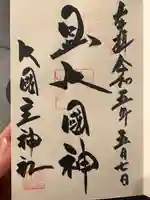 奉拝 令和五年 五月七日
日出大國神
大國主神社